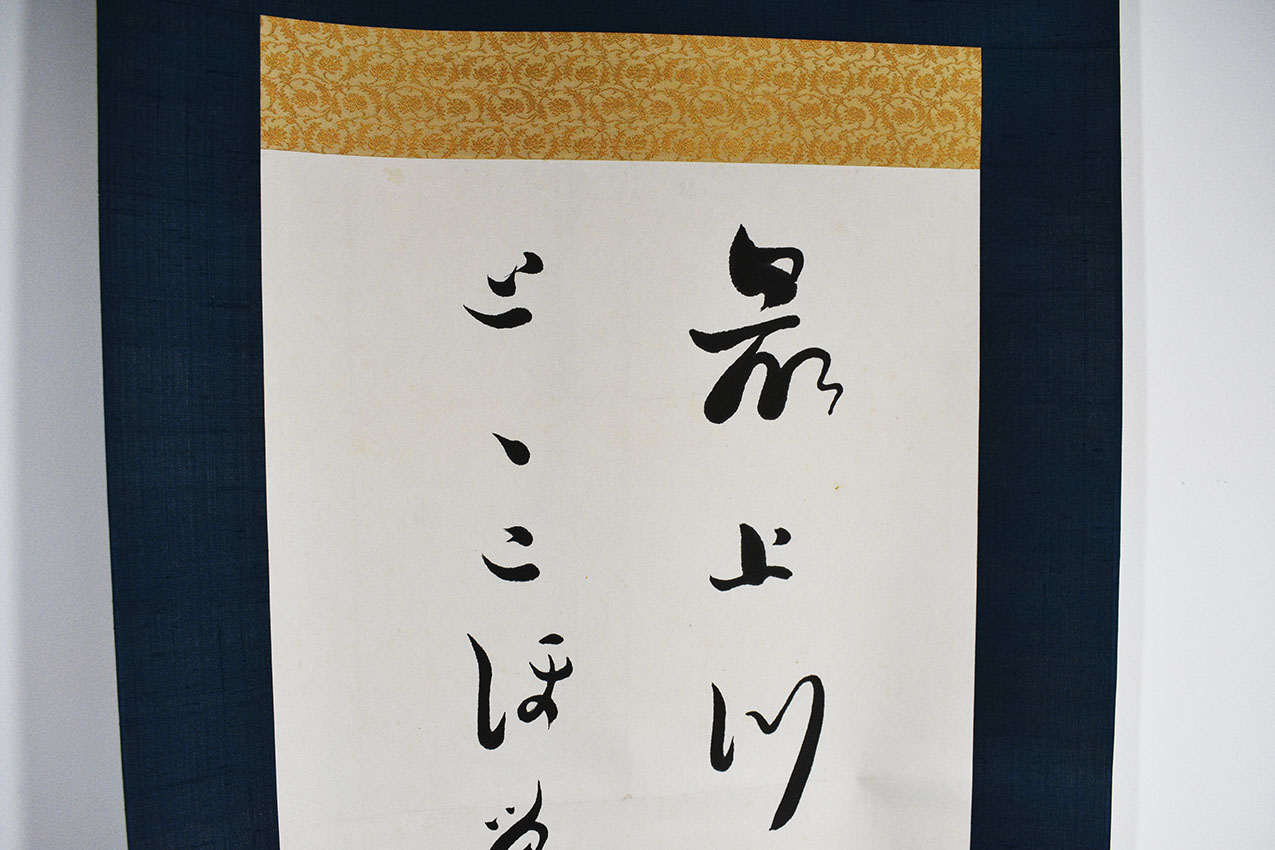 最上川
とゝこほ